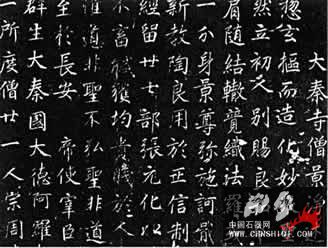 大秦寺僧景
惣玄樞而造化妙
然立初人別賜良
肩随結轍競織法
一分身景尊弥施訶
新教陶良用於正信制
經留廿七部張元化以
不畜臧獲均貴賤於人
惟道非聖不弘聖非道
至於長安 帝使宰臣
群生大秦國大德阿羅
一所度僧廿一人崇周
中国石器网
www.chinashiqi.com